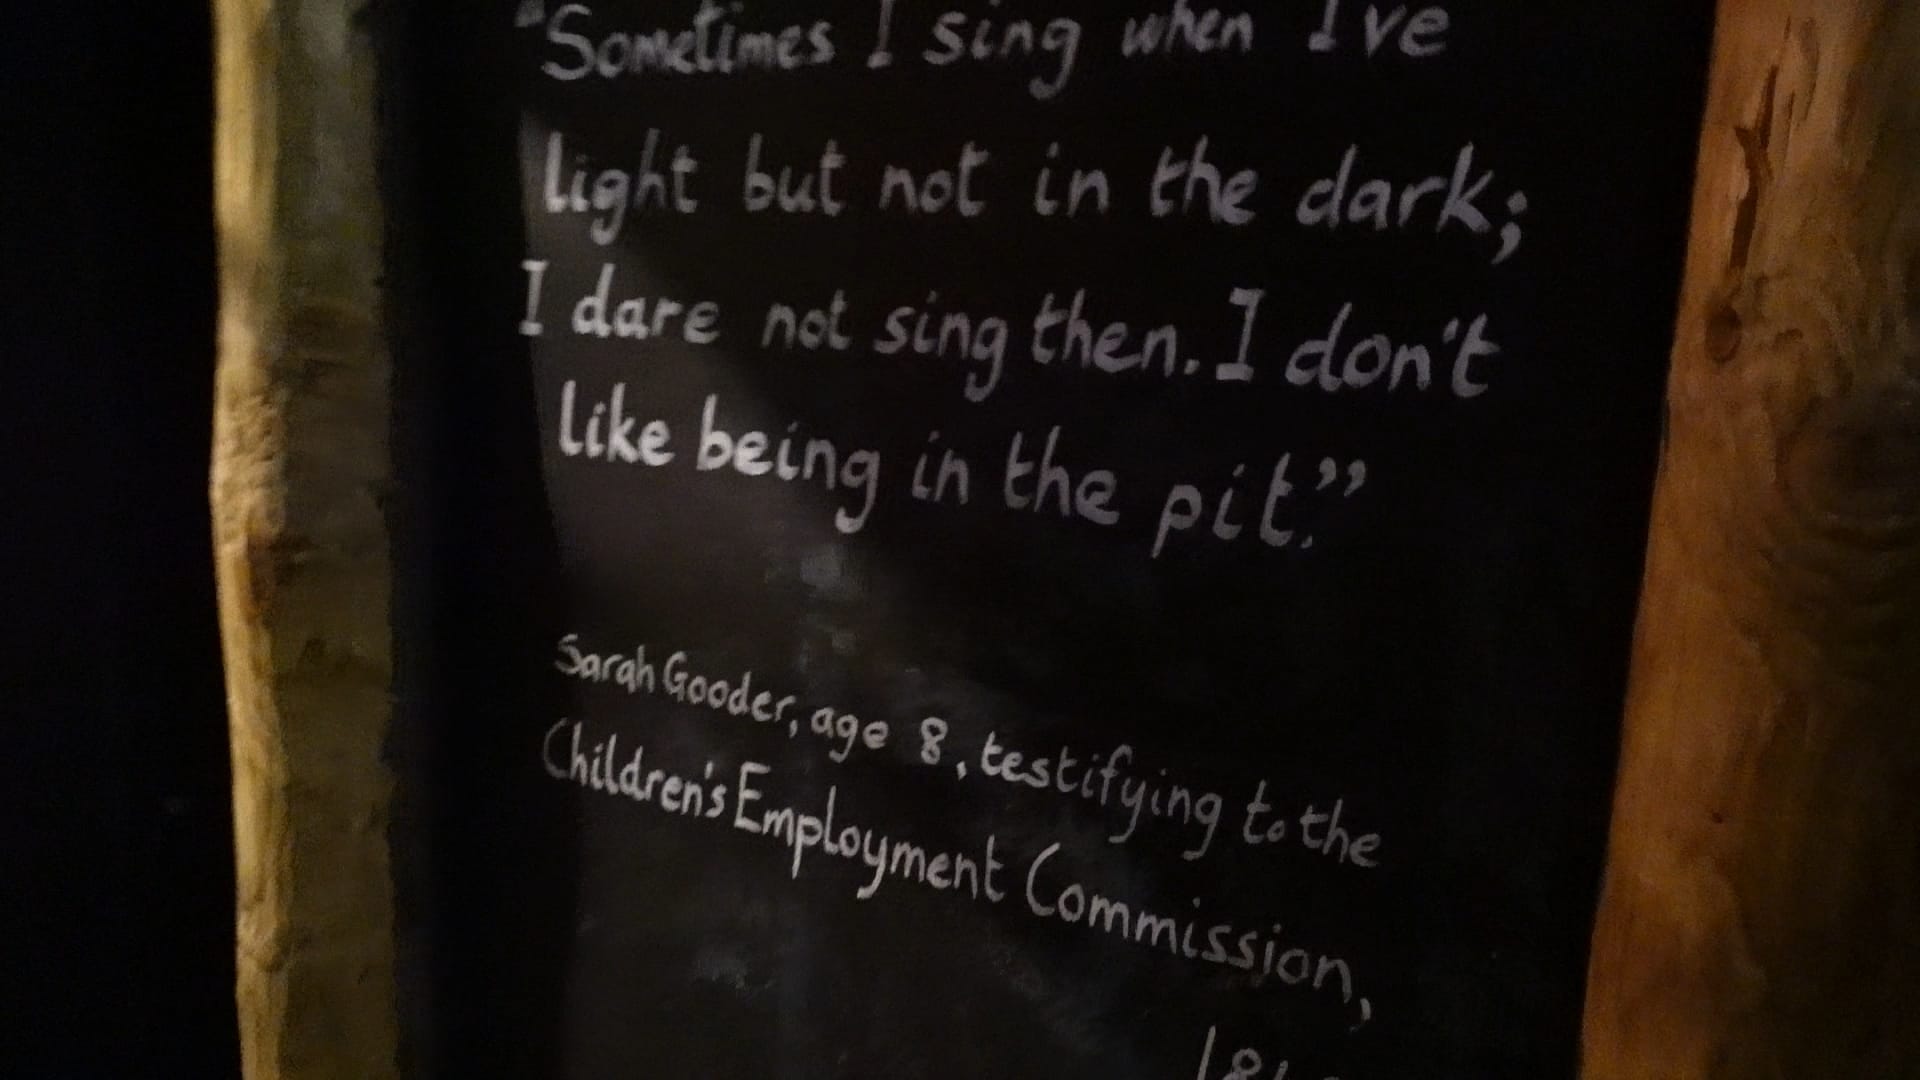 "Sometimes I sing when I've
light but not in the dark;
I dare not sing then. I don't
like being in the pit."
Sarah Gooder, age 8, testifying to the
Children's Employment Commission,